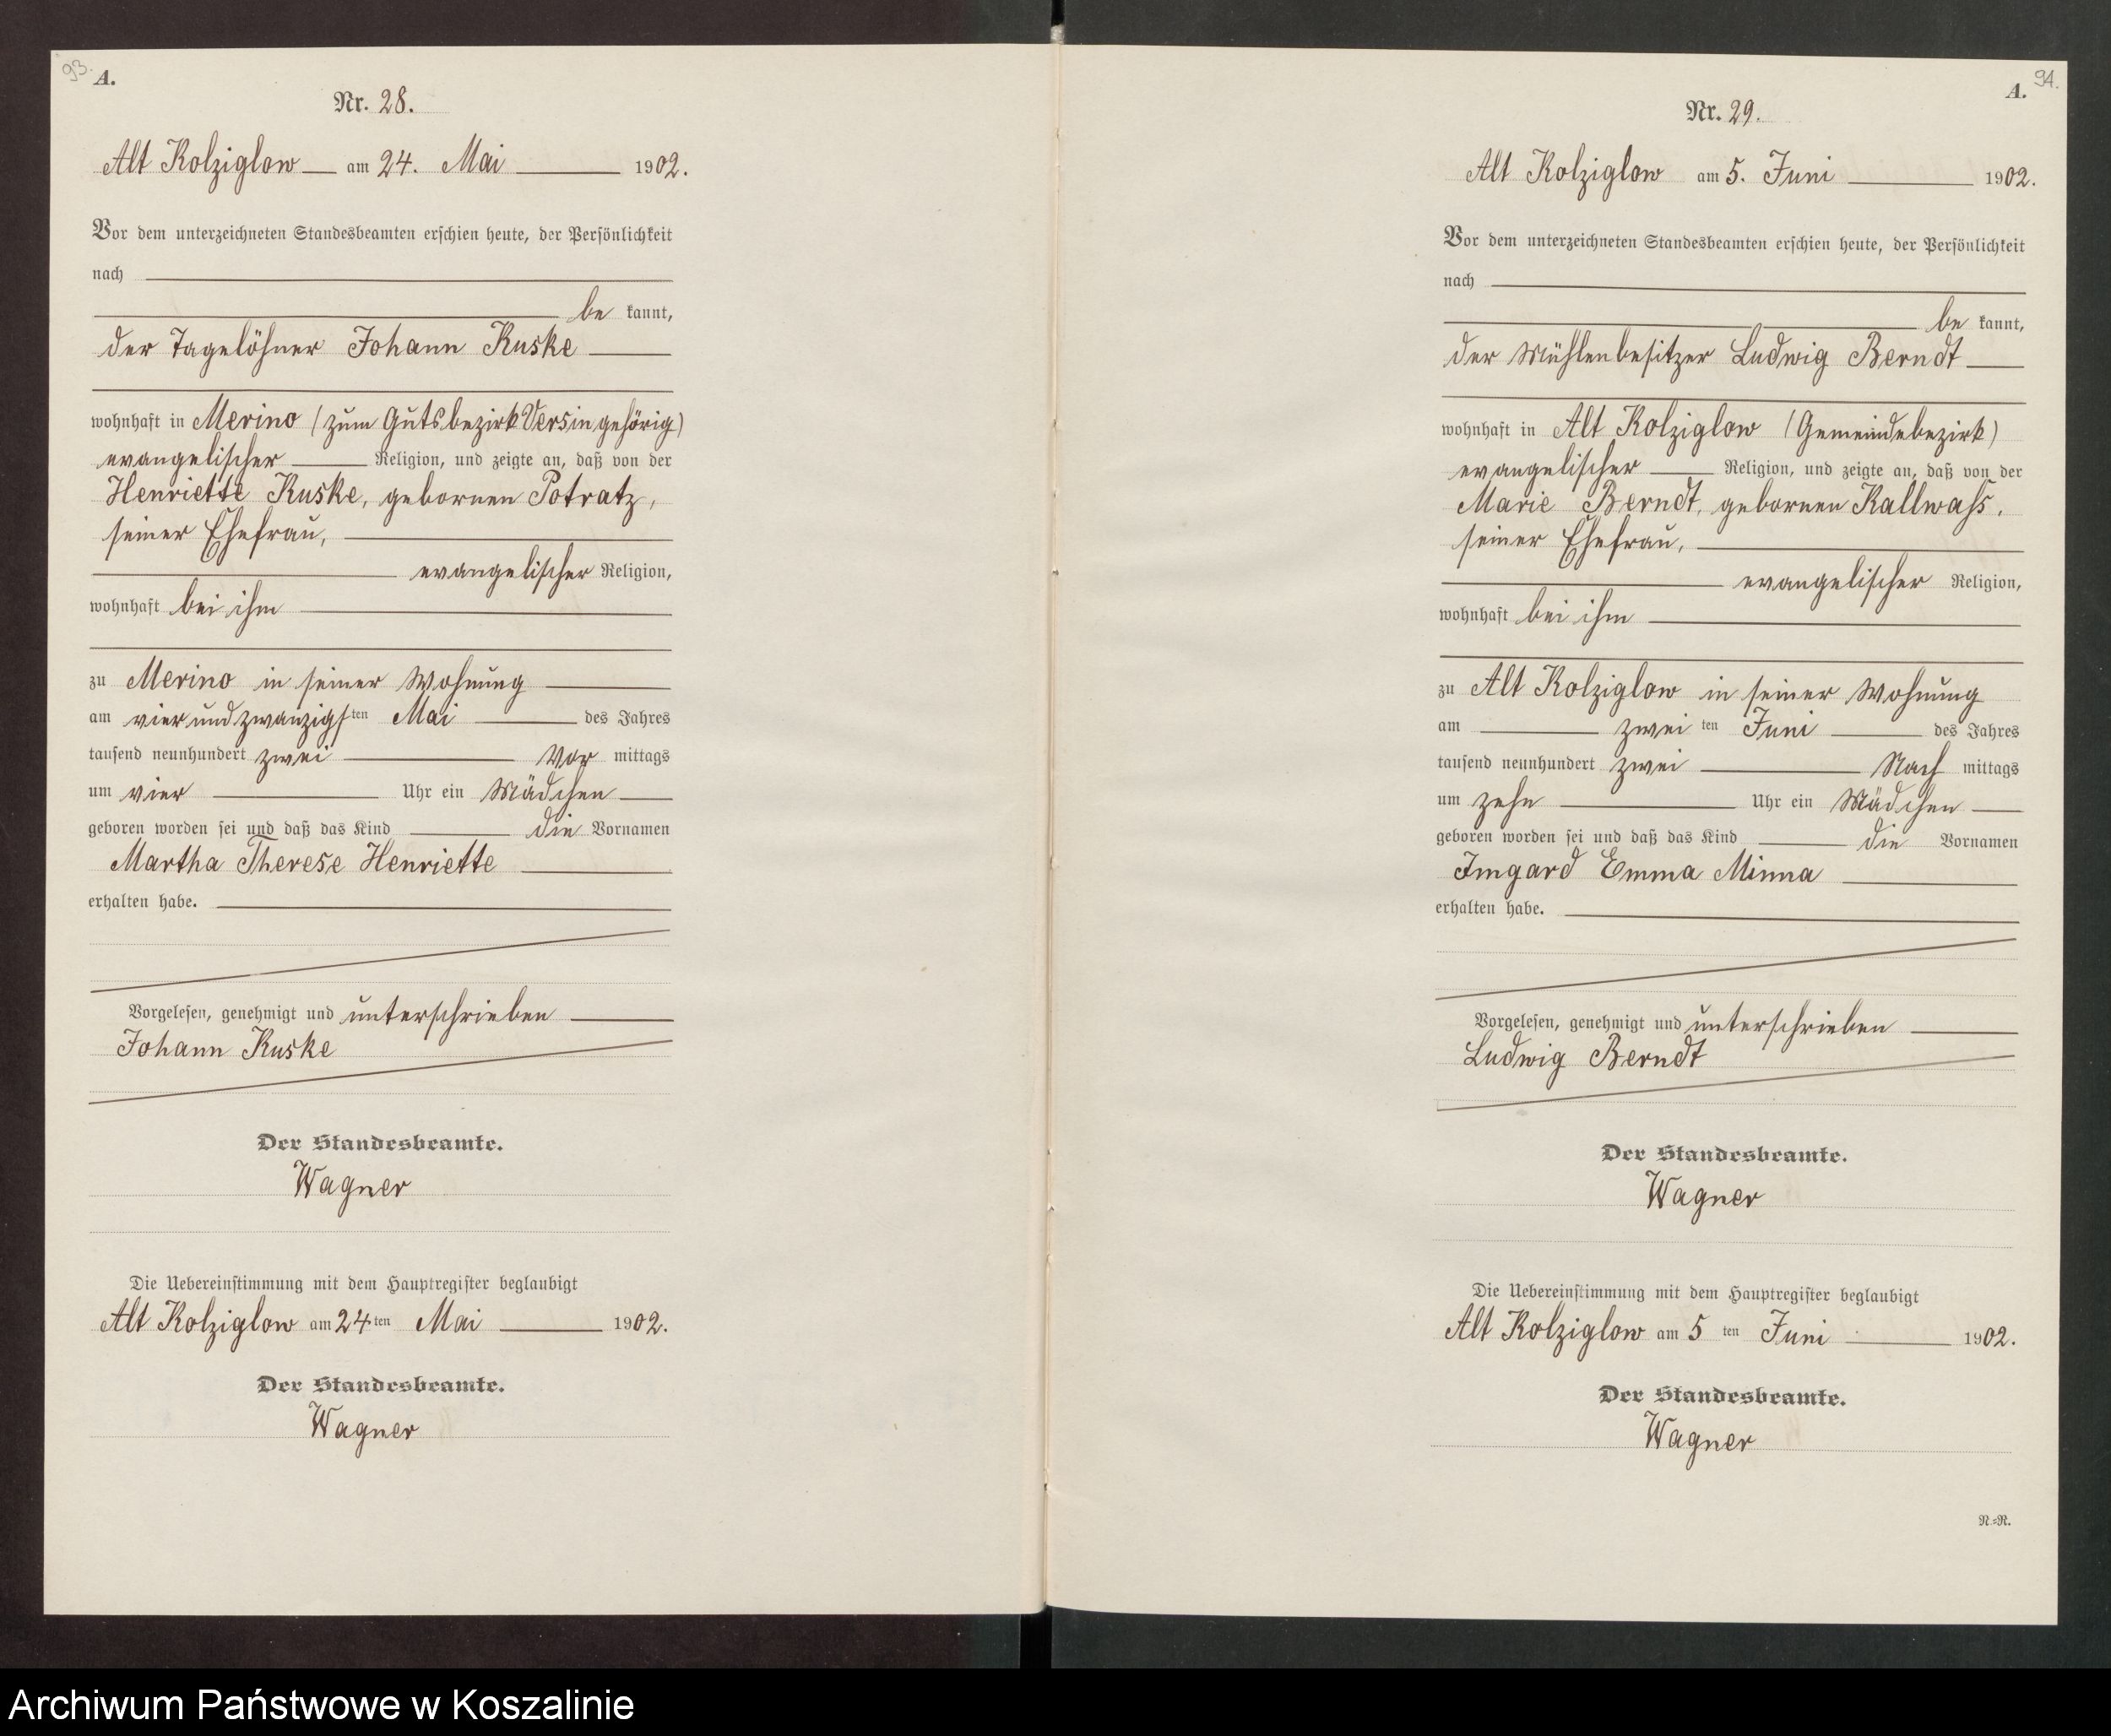 93.
A.
Nr. 28.
Alt Kolziglow am 24. Mai 1902.
Vor dem unterzeichneten Standesbeamten erschien heute, der Persönlichkeit
nach
be kannt,
der Tagelöhner Johann Kuske
wohnhaft in Merino (zum Gutsbezirk Versin gehörig)
evangelischer Religion, und zeigte an, daß von der
Henriette Kuske, gebornen Potratz,
seiner Ehefrau,
evangelischer Religion,
wohnhaft bei ihm
zu Merino in seiner Wohnung
am vier und zwanzigsten Mai des Jahres
tausend neunhundert zwei Vor mittags
um vier Uhr ein Mädchen
geboren worden sei und daß das Kind die Vornamen
Martha Therese Henriette
erhalten habe.
Vorgelesen, genehmigt und unterschrieben
Johann Kuske
Der Standesbeamte.
Wagner
Die Uebereinstimmung mit dem Hauptregister beglaubigt
Alt Kolziglow am 24 ten Mai 1902.
Der Standesbeamte.
Wagner
94.
A.
Nr. 29.
Alt Kolziglow am 5. Juni 1902.
Vor dem unterzeichneten Standesbeamten erschien heute, der Persönlichkeit
nach
be kannt,
der Mühlenbesitzer Ludwig Berndt
wohnhaft in Alt Kolziglow (Gemeindebezirk)
evangelischer Religion, und zeigte an, daß von der
Marie Berndt, gebornen Kallwaß,
seiner Ehefrau,
evangelischer Religion,
wohnhaft bei ihm
zu Alt Kolziglow in seiner Wohnung
am zwei ten Juni des Jahres
tausend neunhundert zwei Nach mittags
um zehn Uhr ein Mädchen
geboren worden sei und daß das Kind die Vornamen
Imgard Emma Minna
erhalten habe.
Vorgelesen, genehmigt und unterschrieben
Ludwig Berndt
Der Standesbeamte.
Wagner
Die Uebereinstimmung mit dem Hauptregister beglaubigt
Alt Kolziglow am 5 ten Juni 1902.
Der Standesbeamte.
Wagner
N.=R.
Archiwum Państwowe w Koszalinie